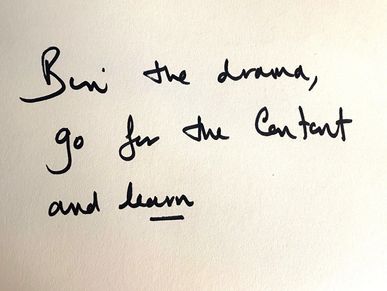 Bin the drama,
go for the Content
and learn